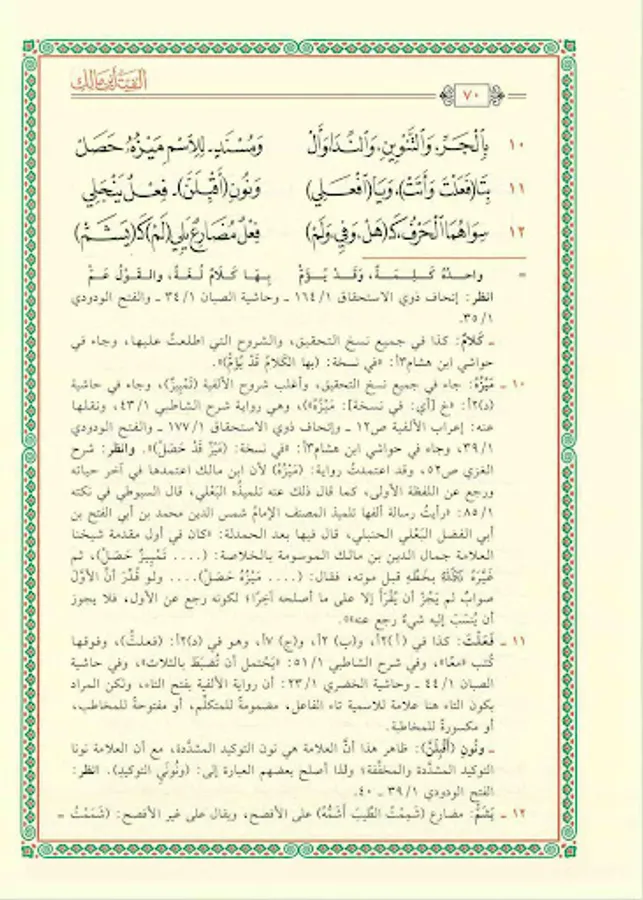 ألفية ابن مالك
٧٠
١٠ بِالْجَرِّ، وَالتَّنْوِينِ، وَالنِّدَا، وَأَلْ وَمُسْنَدٍ - لِلِاسْمِ مَيْزُهُ حَصَلْ
١١ بِتَا (فَعَلْتَ وَأَتَتْ)، وَيَا (افْعَلِي) وَنُونِ (أَقْبِلَنَّ) - فِعْلٌ يَنْجَلِي
١٢ سِوَاهُمَا الْحَرْفُ، كَـ (هَلْ، وَفِي، وَلَمْ) فِعْلٌ مُضَارِعٌ يَلِي (لَمْ) كَـ (يَشَمْ)
= واحدُهُ كَـلِـمَـةٌ، وَقَدْ يُـؤَمُّ بِـهَا كَـلَامٌ لُـغَـةً، والـقَـوْلُ عَـمّْ
انظر: إتحاف ذوي الاستحقاق ١/١٦٤ ـ وحاشية الصبان ١/٣٤ ـ والفتح الودودي
١/٣٥.
ـ كَلَامٌ: كذا في جميع نسخ التحقيق، والشروح التي اطلعتُ عليها، وجاء في
حواشي ابن هشام٣أ: «في نسخة: (بها الكَلَامُ قَدْ يُؤَمُّ)».
١٠ ـ مَيْزُهُ: جاء في جميع نسخ التحقيق، وأغلب شروح الألفية (تَمْيِيزٌ)، وجاء في حاشية
(د)٢أ: «خ [أي: في نسخة]: مَيْزُهُ»)، وهي رواية شرح الشاطبي ١/٤٣، ونقلها
عنه: إعراب الألفية ص١٢ ـ وإتحاف ذوي الاستحقاق ١/١٧٧ ـ والفتح الودودي
١/٣٩، وجاء في حواشي ابن هشام٣أ: «في نسخة: (مَيْزٌ قَدْ حَصَلْ)». وانظر: شرح
الغزي ص٥٢، وقد اعتمدتُ رواية: (مَيْزُهُ) لأن ابن مالك اعتمدها في آخر حياته
ورجع عن اللفظة الأولى، كما قال ذلك عنه تلميذُه البَعْلي، قال السيوطي في نكته
١/٨٥: «رأيتُ رسالة ألفها تلميذ المصنف الإمامُ شمس الدين محمد بن أبي الفتح بن
أبي الفضل البَعْلي الحنبلي، قال فيها بعد الحمدلة: «كان في أول مقدمة شيخنا
العلامة جمال الدين بن مالك الموسومة بالخلاصة: (.... تَمْيِيزٌ حَصَلْ)، ثم
غيَّرَهُ رَحِمَهُ اللهُ بخطِّهِ قبل موته، فقال: (.... مَيْزُهُ حَصَلْ).... ولو قُدِّرَ أنَّ الأوَّلَ
صوابٌ لم يَجُزْ أن يُقْرَأَ إلا على ما أصلحه آخِرًا؛ لكونه رجع عن الأول، فلا يجوز
أن يُنسَبَ إليه شيءٌ رجع عنه»».
١١ ـ فَعَلْتَ: كذا في (أ)٢أ، و(ب) ٢أ، و(ج) ٧أ، وهو في (د)٢أ: (فعلتُ)، وفوقها
كُتب «معًا»، وفي شرح الشاطبي ١/٥١: «يَحْتمل أن تُضبَطَ بالثلاث»، وفي حاشية
الصبان ١/٤٤ ـ وحاشية الخضري ١/٢٣: أن رواية الألفية بفتح التاء، ولكن المراد
بكون التاء هنا علامة للاسمية تاء الفاعل، مضمومةً للمتكلِّم، أو مفتوحةً للمخاطب،
أو مكسورةً للمخاطبة.
ـ ونُونِ (أَقْبِلَنَّ): ظاهر هذا أنَّ العلامة هي نون التوكيد المشدَّدة، مع أن العلامة نونا
التوكيد المشدَّدة والمخفَّفة؛ ولذا أصلح بعضهم العبارة إلى: (ونُونَيِ التوكيدِ). انظر:
الفتح الودودي ١/٣٩ ـ ٤٠.
١٢ ـ يَشَمّْ: مضارع (شَمِمْتُ الطِّيبَ أَشَمُّهُ) على الأفصح، ويقال على غير الأفصح: (شَمَمْتُ =